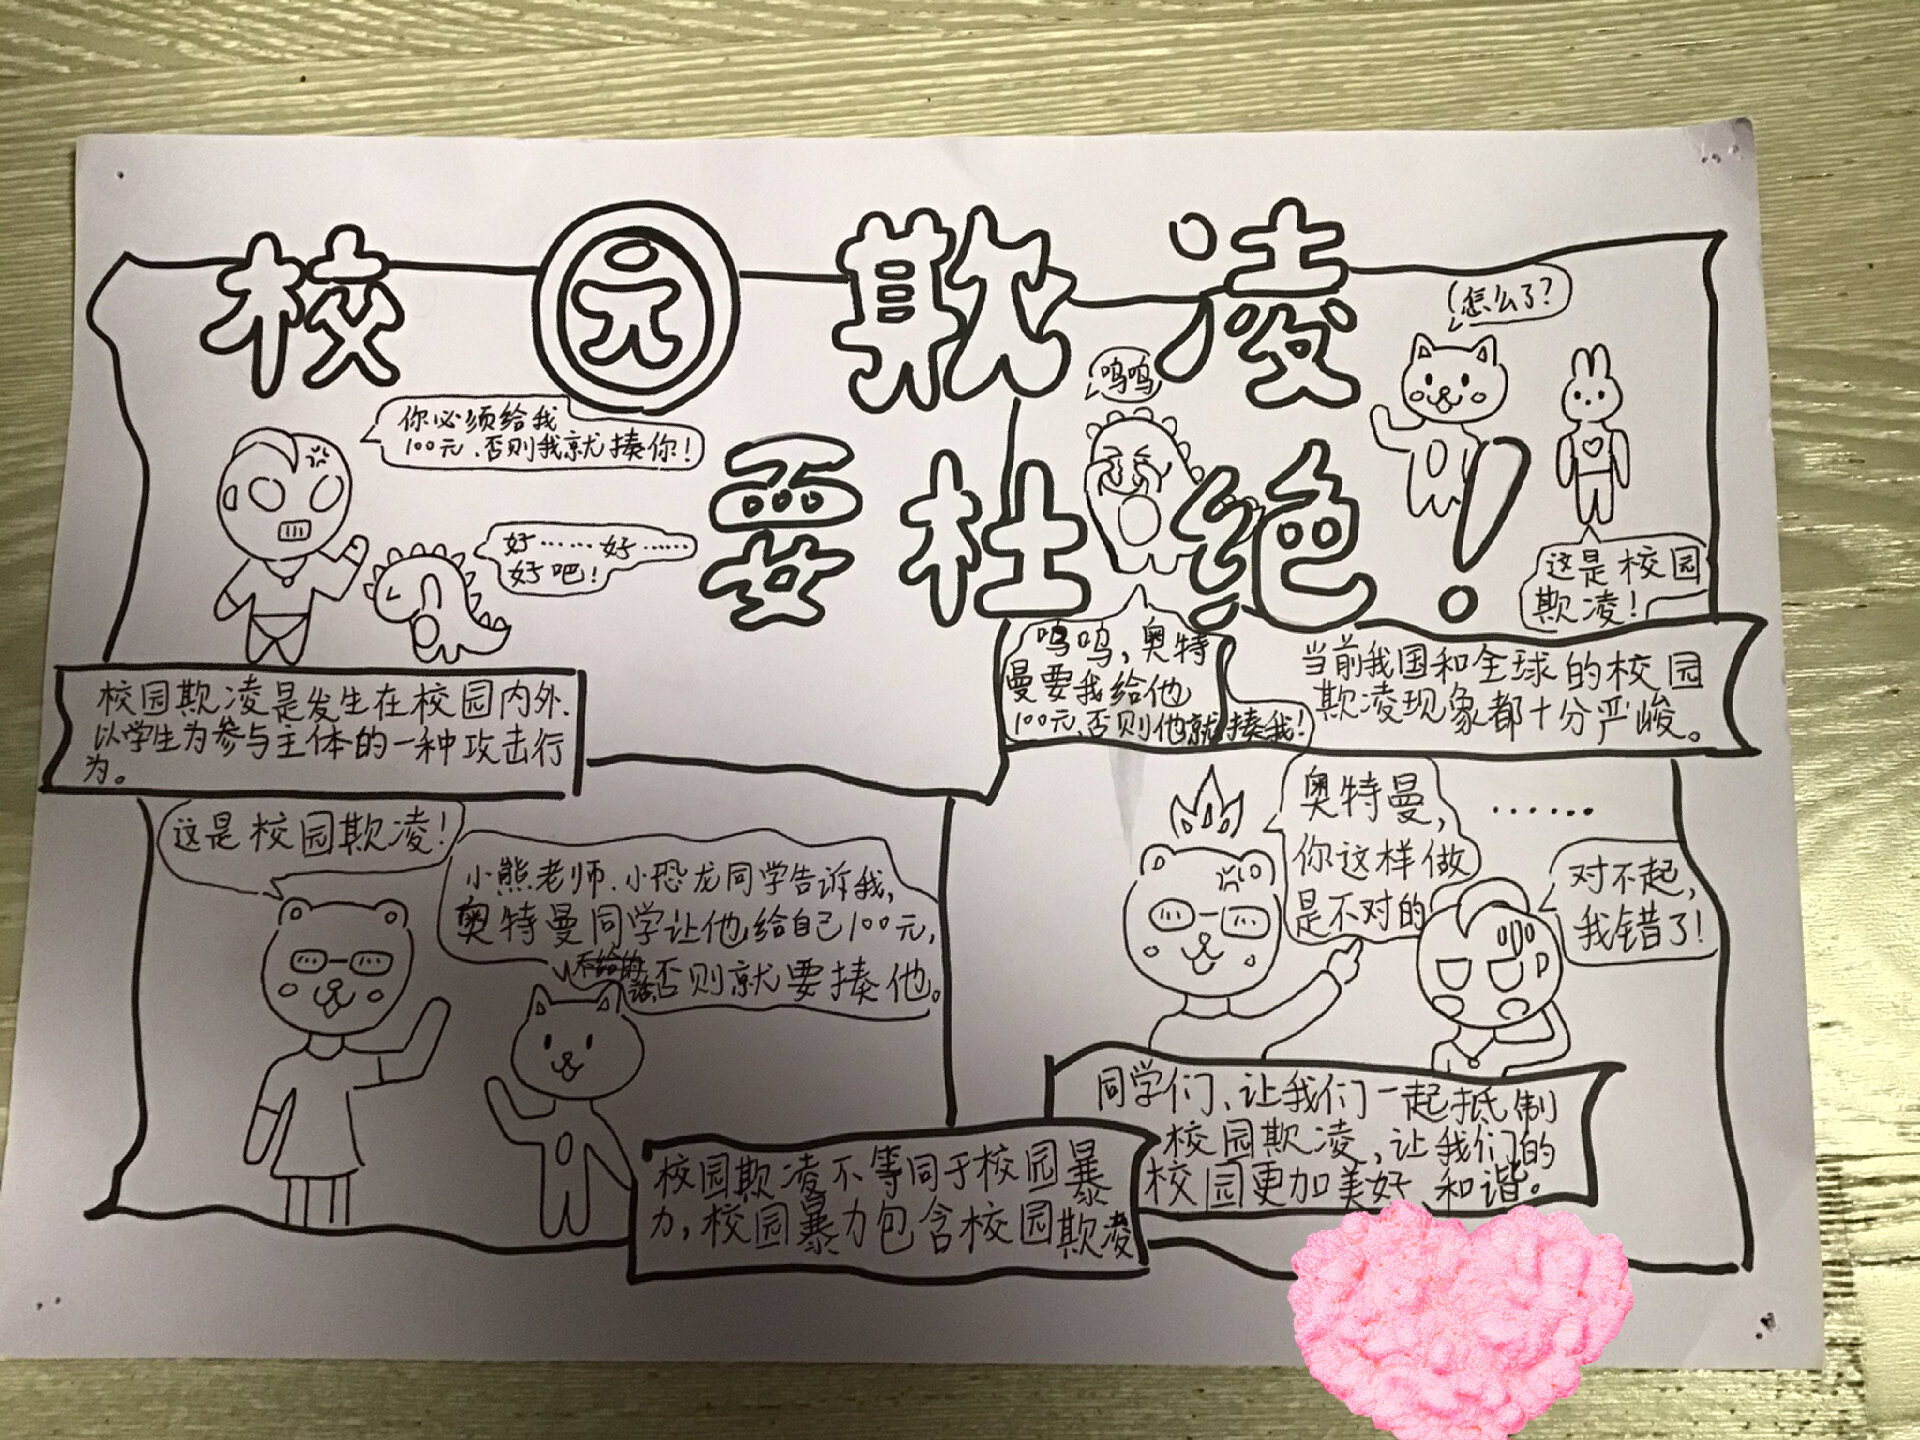 校园欺凌
要杜绝！
你必须给我
100元、否则我就揍你！
好……好……
好吧！
校园欺凌是发生在校园内外、
以学生为参与主体的一种攻击行
为。
呜呜
怎么了？
这是校园
欺凌！
呜呜，奥特
曼要我给他
100元、否则他就揍我！
当前我国和全球的校园
欺凌现象都十分严峻。
这是校园欺凌！
小熊老师、小恐龙同学告诉我，
奥特曼同学让他给自己100元，
不给的话
否则就要揍他。
校园欺凌不等同于校园暴
力，校园暴力包含校园欺凌
奥特曼，
你这样做
是不对的
……
对不起，
我错了！
同学们、让我们一起抵制
校园欺凌，让我们的
校园更加美好、和谐。